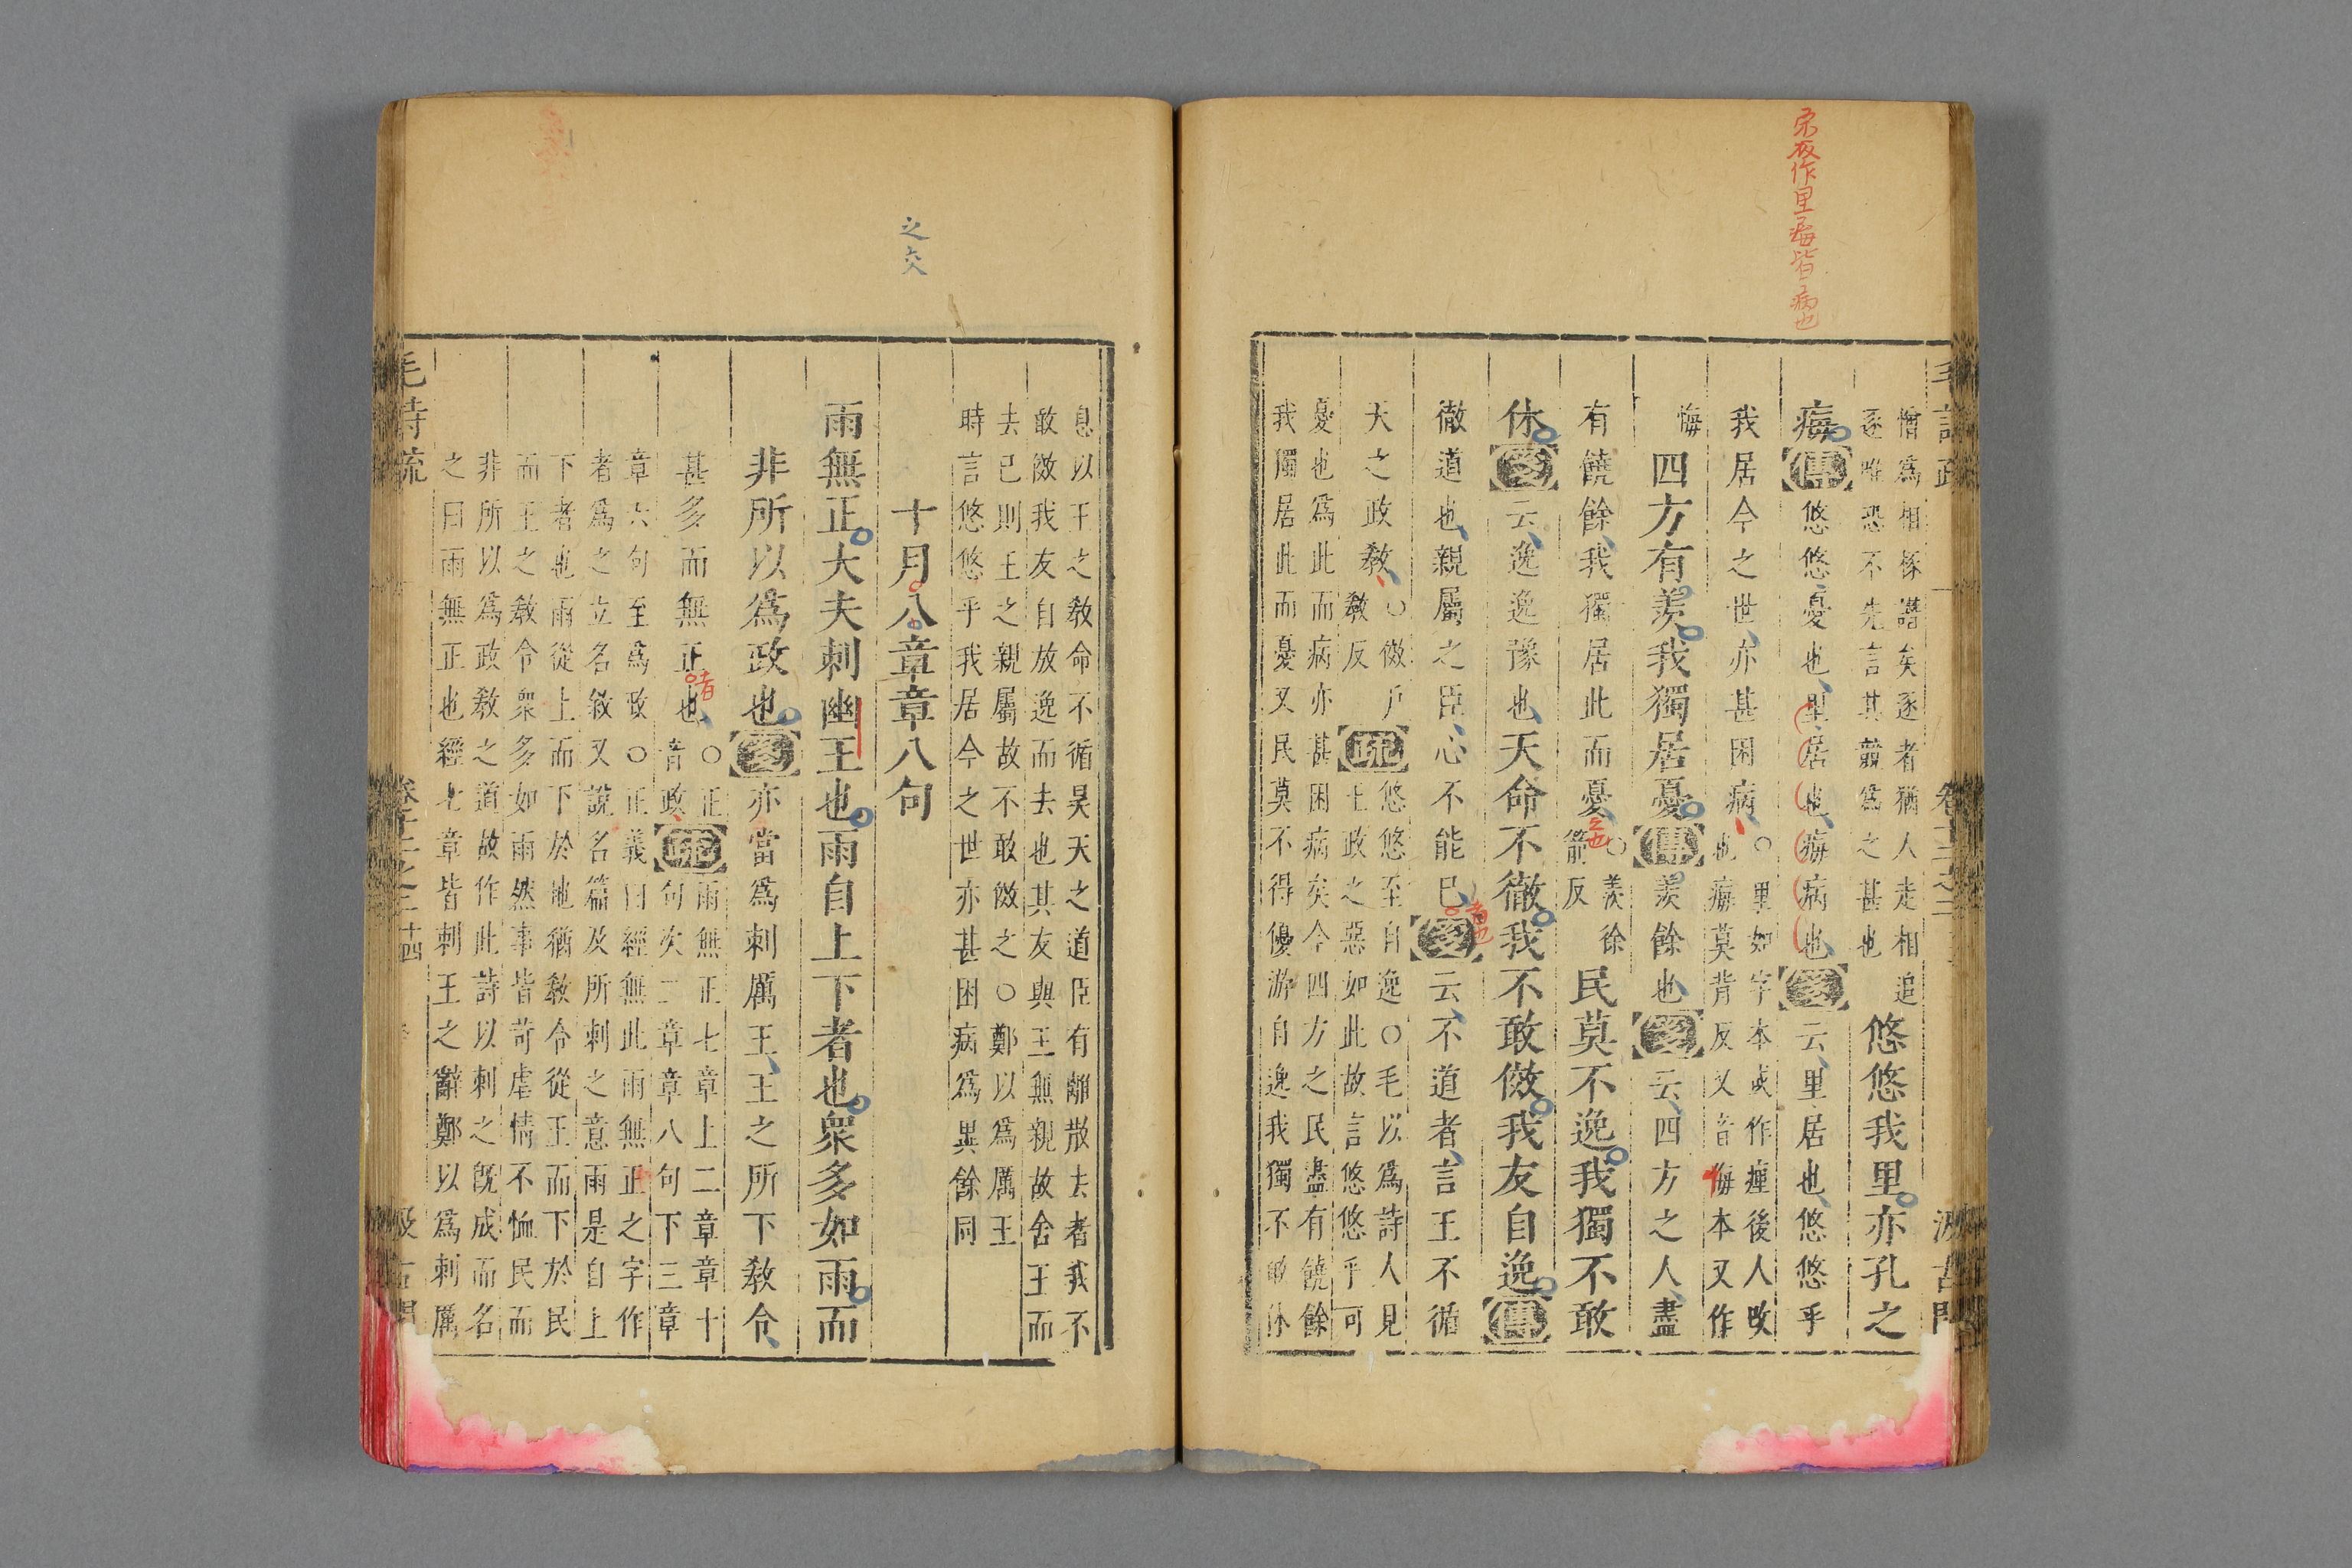 宋板作里痗皆病也
憎爲相椓譖矣逐者猶人走相追
逐唯恐不先言其競爲之甚也
悠悠我里亦孔之
痗傳悠悠憂也里居也痗病也箋云里居也悠悠乎
我居今之世亦甚困病
○里如字本或作㾖後人改
也痗莫背反又音悔本又作
悔
四方有羨我獨居憂傳羨餘也箋云四方之人盡
有饒餘我獨居此而憂之也
○羨徐
箭反
民莫不逸我獨不敢
休箋云逸逸豫也天命不徹我不敢傚我友自逸傳
徹道也親屬之臣心不能已者也箋云不道者言王不循
天之政教
○傚戶
教反
疏悠悠至自逸○毛以爲詩人見
王政之惡如此故言悠悠乎可
憂也爲此而病亦甚困病矣今四方之民盡有饒餘
我獨居此而憂又民莫不得優游自逸我獨不敢休
息以王之敎命不循昊天之道臣有離散去者我不
敢傚我友自放逸而去也其友與王無親故舍王而
去已則王之親屬故不敢傚之○鄭以爲厲王
時言悠悠乎我居今之世亦甚困病爲異餘同
之交
十月八章章八句
雨無正大夫刺幽王也雨自上下者也衆多如雨而
非所以爲政也箋亦當爲刺厲王王之所下敎令
甚多而無正也者
○正
音政
疏雨無正七章上二章章十
句次二章章八句下三章
章六句至爲政○正義曰經無此雨無正之字作
者爲之立名敘又說名篇及所刺之意雨是自上
下者也雨從上而下於地猶敎令從王而下於民
而王之敎令衆多如雨然事皆苛虐情不恤民而
非所以爲政敎之道故作此詩以刺之既成而名
之曰雨無正也經七章皆刺王之辭鄭以爲刺厲
毛詩疏
卷十二之二
十四
汲古閣